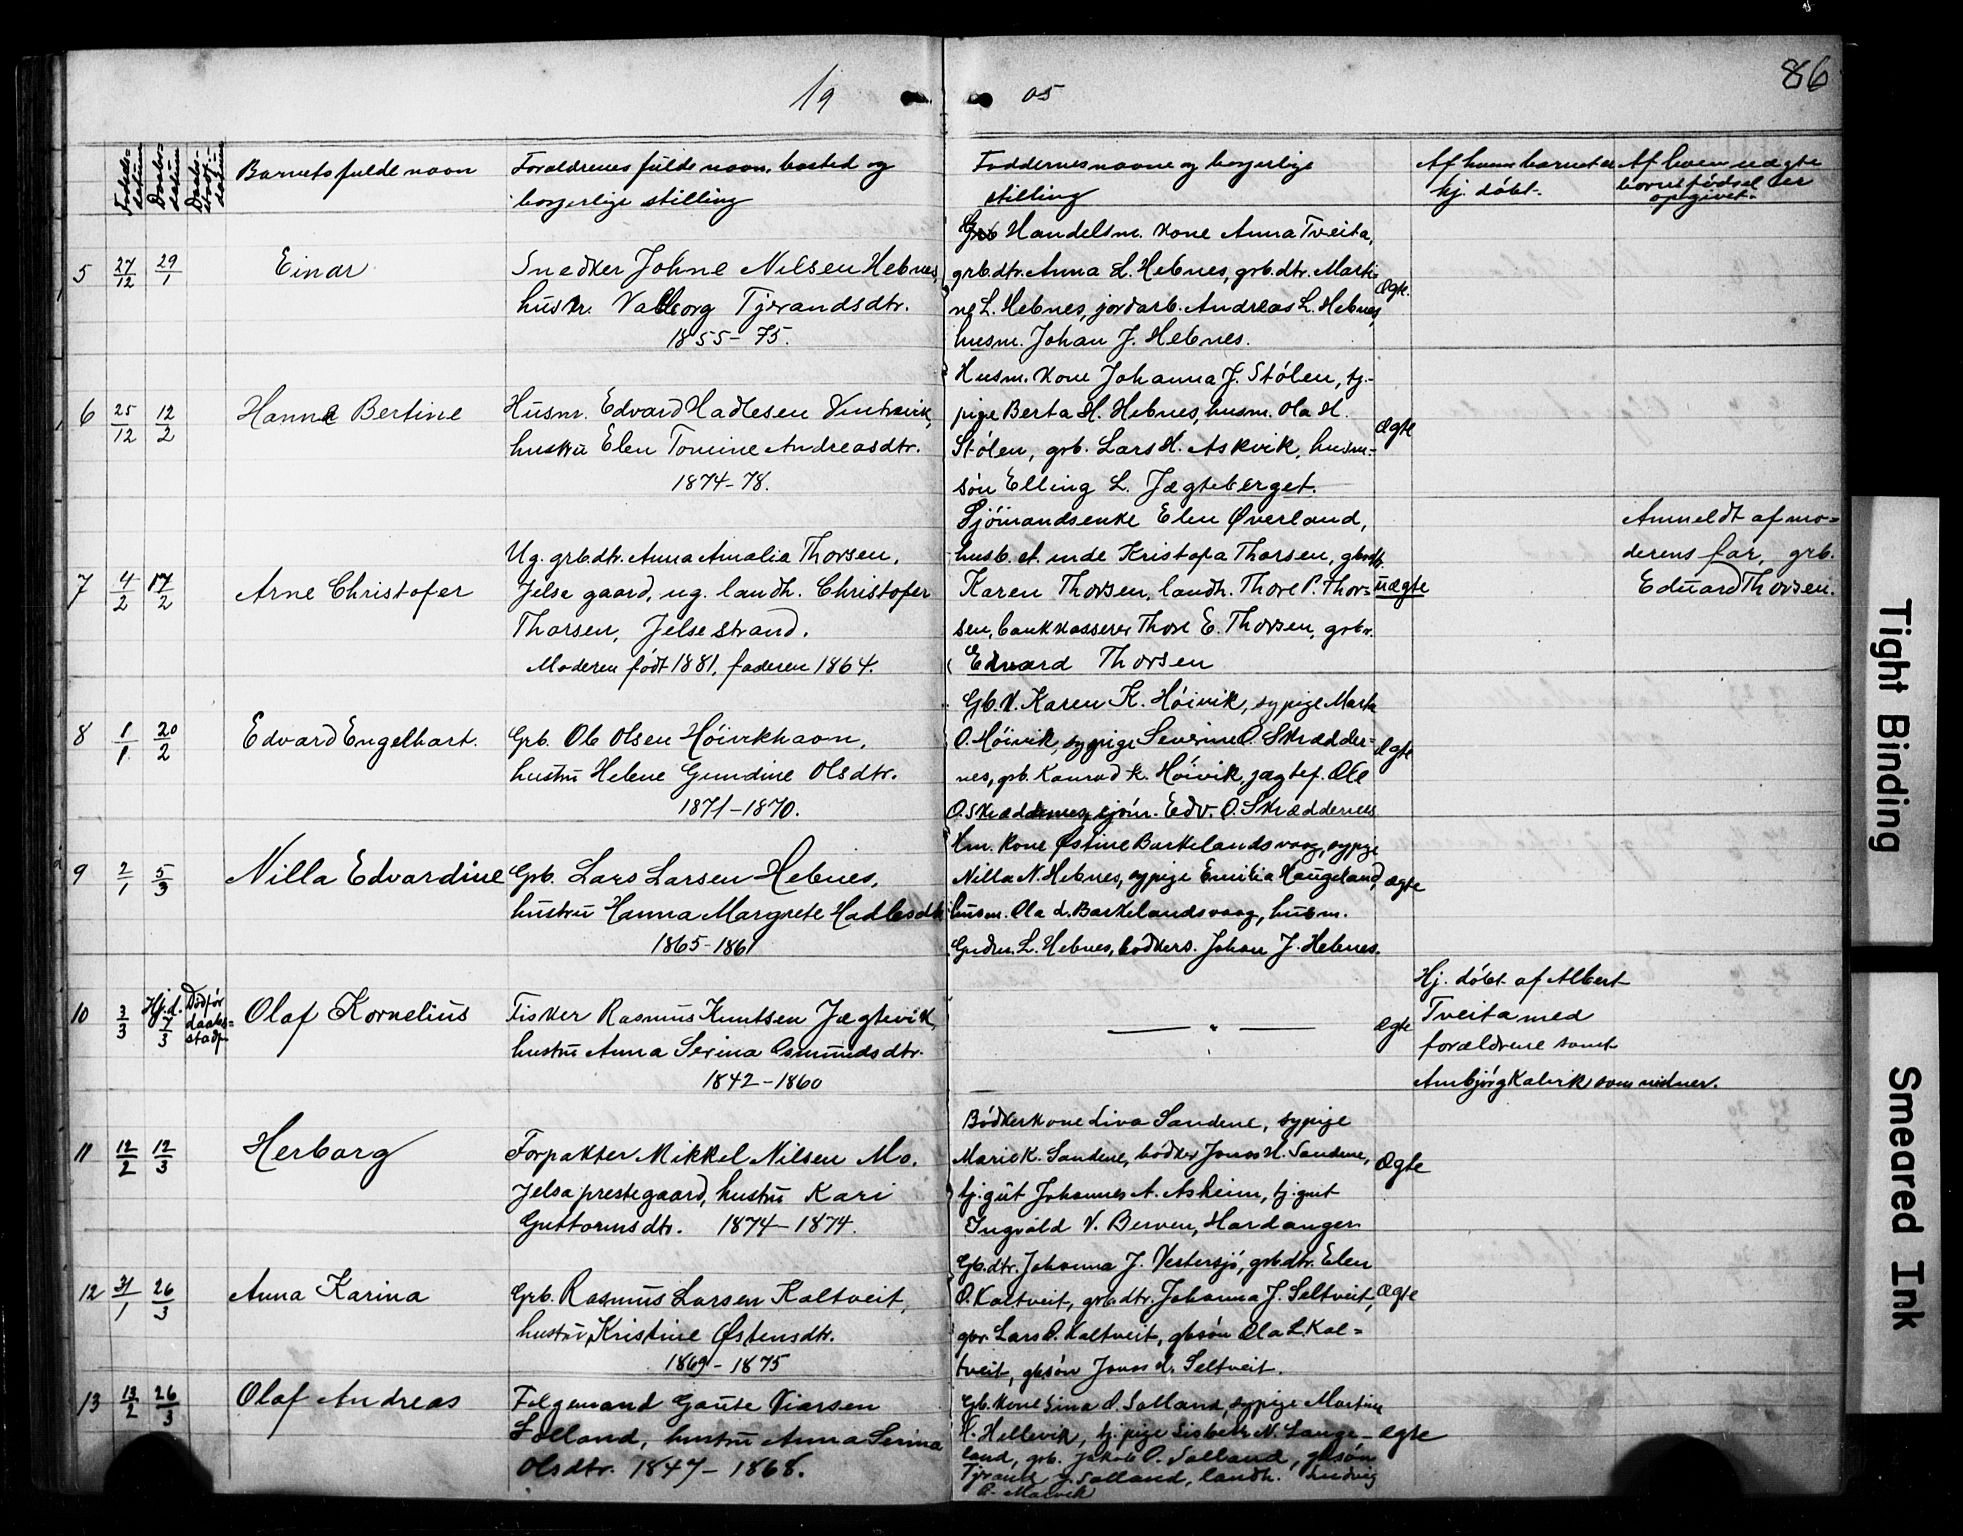 19 05
86
Fødsels-
datum
Daabs-
datum
Daabs-
stadf.-
datum
Barnets fulde navn
Forældrenes fulde navn, bosted og
borgerlige stilling
Faddernes navne og borgerlige
stilling
Af hvem barnet er
hj. døbt.
Af hvem uægte
barnefødsel er
opgivet.
5 27/12 29/1 Einar
Snedker Johne Nilsen Hebnes,
hustr. Valborg Tjerandsdtr.
1855-75.
Grb Handelsm. kone Anna Tveita,
grb.dtr. Anna L. Hebnes, grb.dtr. Marti-
ne L. Hebnes, jordarb. Andreas L. Hebnes,
husm. Johan J. Hebnes.
Ægte.
6 25/12 12/2 Hanna Bertine
Husm. Edvard Hadlesen Vintravik,
hustru Elen Tomine Andreasdtr.
1874-78.
Husm. kone Johanna J. Stølen, tj.-
pige Berta H. Hebnes, husm. Ola H.
Stølen, grb. Lars H. Askvik, husm.-
søn Elling L. Jægteberget.
ægte
7 4/2 17/2 Arne Christofer
Ug. grb.dtr. Anna Amalia Thorsen,
Jelse gaard, ug. landh. Christofer
Thorsen, Jelse strand.
Moderen født 1881, faderen 1864.
Sjømandsenke Elen Øverland,
husb. et. inde Kristofa Thorsen, gbrdtr.
Karen Thorsen, landh. Thore P. Thor-
sen, bankkasserer Thore E. Thorsen, grbr.
Edvard Thorsen
uægte
Anmeldt af mo-
derens far, grb.
Eduard Thorsen.
8 1/1 20/2 Edvard Engelhart.
Grb. Ole Olsen Høivikhavn,
hustru Helene Gundine Olsdtr.
1871-1870.
Gb. K. Karen K. Høivik, sypige Marta
O. Høivik, sypige Severine O. Skrædder-
nes, grb. Konrad K. Høivik, jægtef. Ole
O. Skræddernes, sjøm. Edv. O. Skræddernes
ægte
9 2/1 5/3 Nilla Edvardine
Grb. Lars Larsen Hebnes,
hustru Hanna Margrete Hadlesdtr.
1865-1861
Hm. kone Østine Barkelandsvaag, sypige
Nilla N. Hebnes, sypige Emilia Haugeland,
husm. Ola L. Barkelandsvaag, husm.
Gudm. L. Hebnes, bødkers. Johan J. Hebnes.
ægte
10 3/3 Hj.d. 7/3 Død før
daabs-
stadf.
Olaf Kornelius
Fisker Rasmus Knutsen Jægtevik,
hustru Anna Serina Osmundsdtr.
1842-1860
— " —
ægte
Hj. døbt af Albert
Tveita med
forældrene samt
Ambjørg Kalvik som vidner.
11 12/2 12/3 Herborg
Forpakter Mikkel Nilsen Mo,
Jelsa prestegaard, hustru Kari
Guttormsdtr. 1874-1874.
Bødkerkone Liva Sandene, sypige
Marie K. Sandene, bødker Jonas H. Sandene,
tj.gut Johannes A. Asheim, tj.gut
Ingvald V. Berven, Hardanger
Ægte
12 31/1 26/3 Anna Karina
Grb. Rasmus Larsen Kaltveit,
hustru Kristine Østensdtr.
1869-1875
Gb.dtr. Johanna J. Vestersjø, grb.dtr. Elen
O. Kaltveit, grb.dtr. Johanna J. Seltveit,
gbr. Lars O. Kaltveit, gbsøn Ola L. Kal-
tveit, gbsøn Jonas H. Seltveit.
ægte
13 13/2 26/3 Olaf Andreas
Følgemand Gaute Viarsen
Solland, hustru Anna Serina
Olsdtr. 1847-1868.
Gb. kone Sina O. Solland, sypige Martine
H. Hellevik, tj. pige Lisbeth N. Lange-
land, grb. Jakob O. Solland, gbsøn
Tjerand G. Solland, landh. Ludvig
ægte
Tight Binding
Smeared Ink